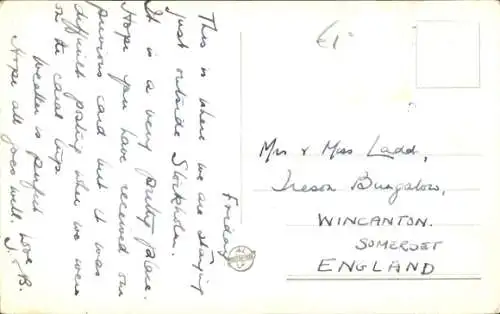 Friday
This is where we are staying
just outside Stockholm.
It is a very pretty place.
Hope you have received our
previous card but it was
difficult posting when we were
on the canal trip.
Weather is perfect
Hope all goes well. Love
J. & B.
£1°
Mrs & Miss Ladd,
Ireson Bungalow,
WINCANTON.
SOMERSET
ENGLAND